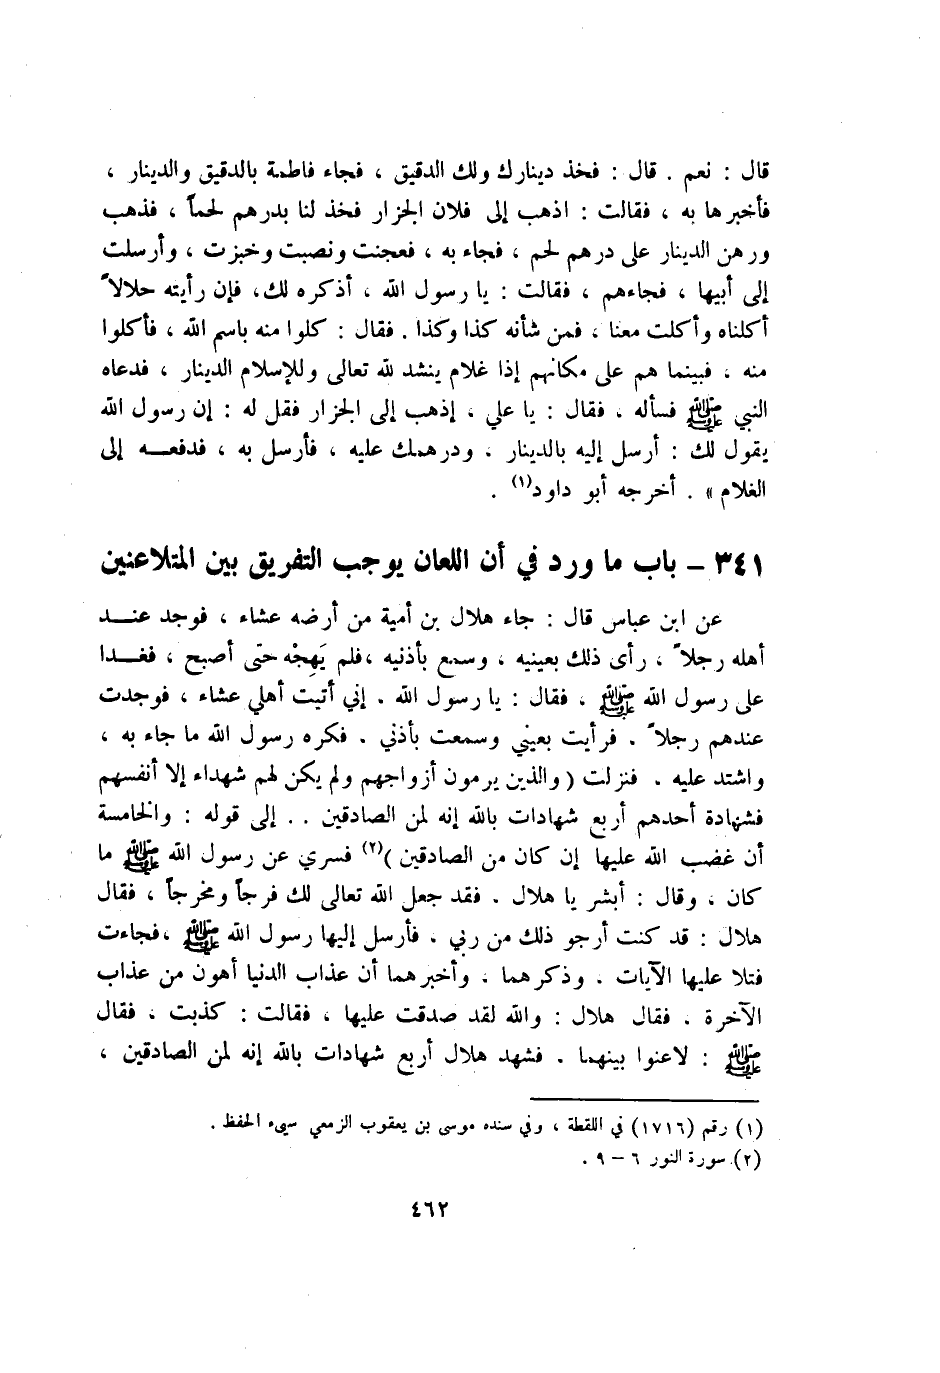 قال : نعم . قال : فخذ دينارك ولك الدقيق ، فجاء فاطمة بالدقيق والدينار ،
فأخبرها به ، فقالت : اذهب إلى فلان الجزار فخذ لنا بدرهم لحماً ، فذهب
ورهن الدينار على درهم لحم ، فجاء به ، فعجنت ونصبت وخبزت ، وأرسلت
إلى أبيها ، فجاءهم ، فقالت : يا رسول الله ، أذكره لك، فإن رأيته حلالاً
أكلناه وأكلت معنا ، فمن شأنه كذا وكذا . فقال : كلوا منه باسم الله ، فأكلوا
منه ، فبينما هم على مكانهم إذا غلام ينشد لله تعالى وللإسلام الدينار ، فدعاه
النبي ﷺ فسأله ، فقال : يا علي ، إذهب إلى الجزار فقل له : إن رسول الله
يقول لك : أرسل إليه بالدينار ، ودرهمك عليه ، فأرسل به ، فدفعـــه إلى
الغلام » . أخرجه أبو داود(١) .
٣٤١ – باب ما ورد في أن اللعان يوجب التفريق بين المتلاعنين
عن ابن عباس قال : جاء هلال بن أمية من أرضه عشاء ، فوجد عنـــد
أهله رجلاً ، رأى ذلك بعينيه ، وسمع بأذنيه ،فلم يَهِجْه حتى أصبح ، فغـــدا
على رسول الله ﷺ ، فقال : يا رسول الله . إني أتيت أهلي عشاء ، فوجدت
عندهم رجلاً . فرأيت بعيني وسمعت بأذني . فكره رسول الله ما جاء به ،
واشتد عليه . فنزلت ( والذين يرمون أزواجهم ولم يكن لهم شهداء إلا أنفسهم
فشهادة أحدهم أربع شهادات بالله إنه لمن الصادقين . . إلى قوله : والخامسة
أن غضب الله عليها إن كان من الصادقين )(٢) فسري عن رسول الله ﷺ ما
كان ، وقال : أبشر يا هلال . فقد جعل الله تعالى لك فرجاً ومخرجاً ، فقال
هلال : قد كنت أرجو ذلك من ربي . فأرسل إليها رسول الله ﷺ ،فجاءت
فتلا عليها الآيات . وذكرهما . وأخبرهما أن عذاب الدنيا أهون من عذاب
الآخرة . فقال هلال : والله لقد صدقت عليها ، فقالت : كذبت ، فقال
ﷺ : لاعنوا بينهما . فشهد هلال أربع شهادات بالله إنه لمن الصادقين ،
(١) رقم (١٧١٦) في اللقطة ، وفي سنده موسى بن يعقوب الزمعي سيىء الحفظ .
(٢) سورة النور ٦ – ٩ .
٤٦٢